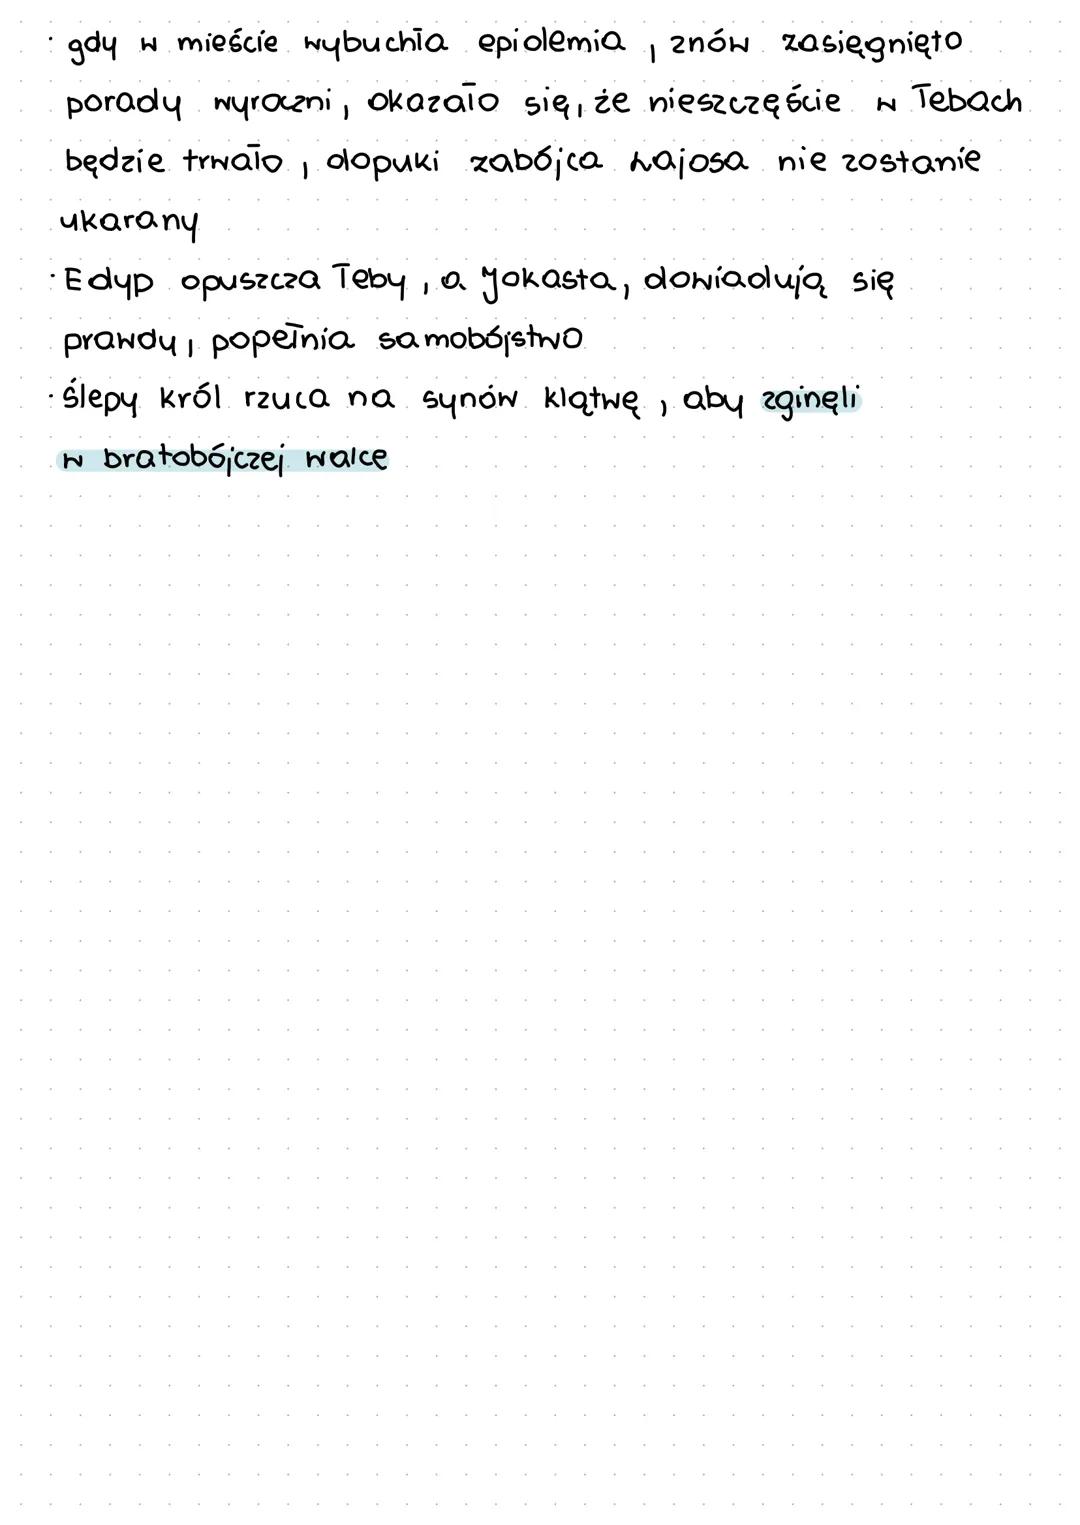 · gdy w mieście wybuchła epidemia, znów zasięgnięto
porady wyroczni, okazało się, że nieszczęście w Tebach
będzie trwało, dopuki zabójca Lajosa nie zostanie
ukarany
· Edyp opuszcza Teby, a Jokasta, dowiadują się
prawdy, popełnia samobójstwo
· Ślepy król rzuca na synów klątwę, aby zginęli
w bratobójczej walce